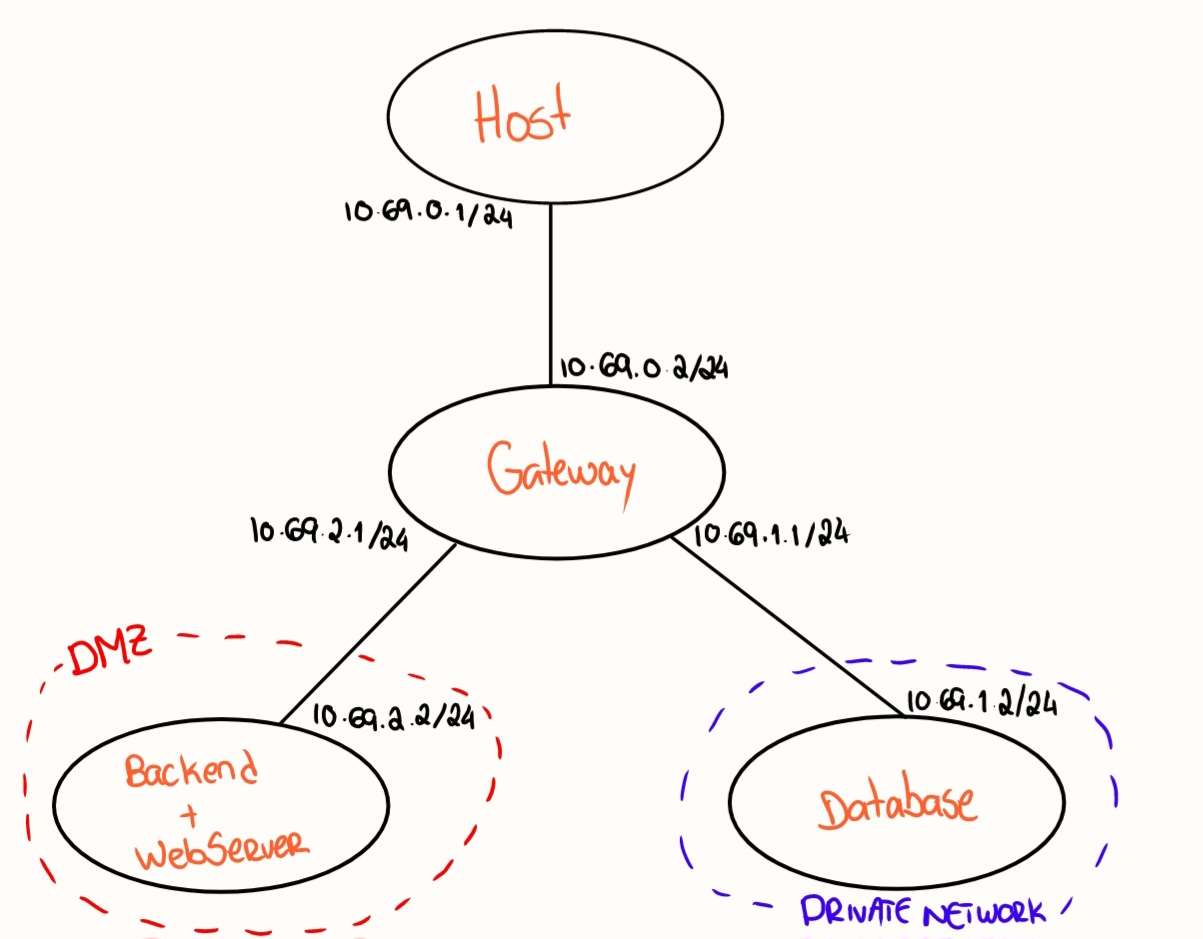 Host
10.69.0.1/24
10.69.0.2/24
Gateway
10.69.2.1/24
10.69.1.1/24
DMZ
10.69.2.2/24
10.69.1.2/24
Backend
+
WebServer
Database
PRIVATE NETWORK